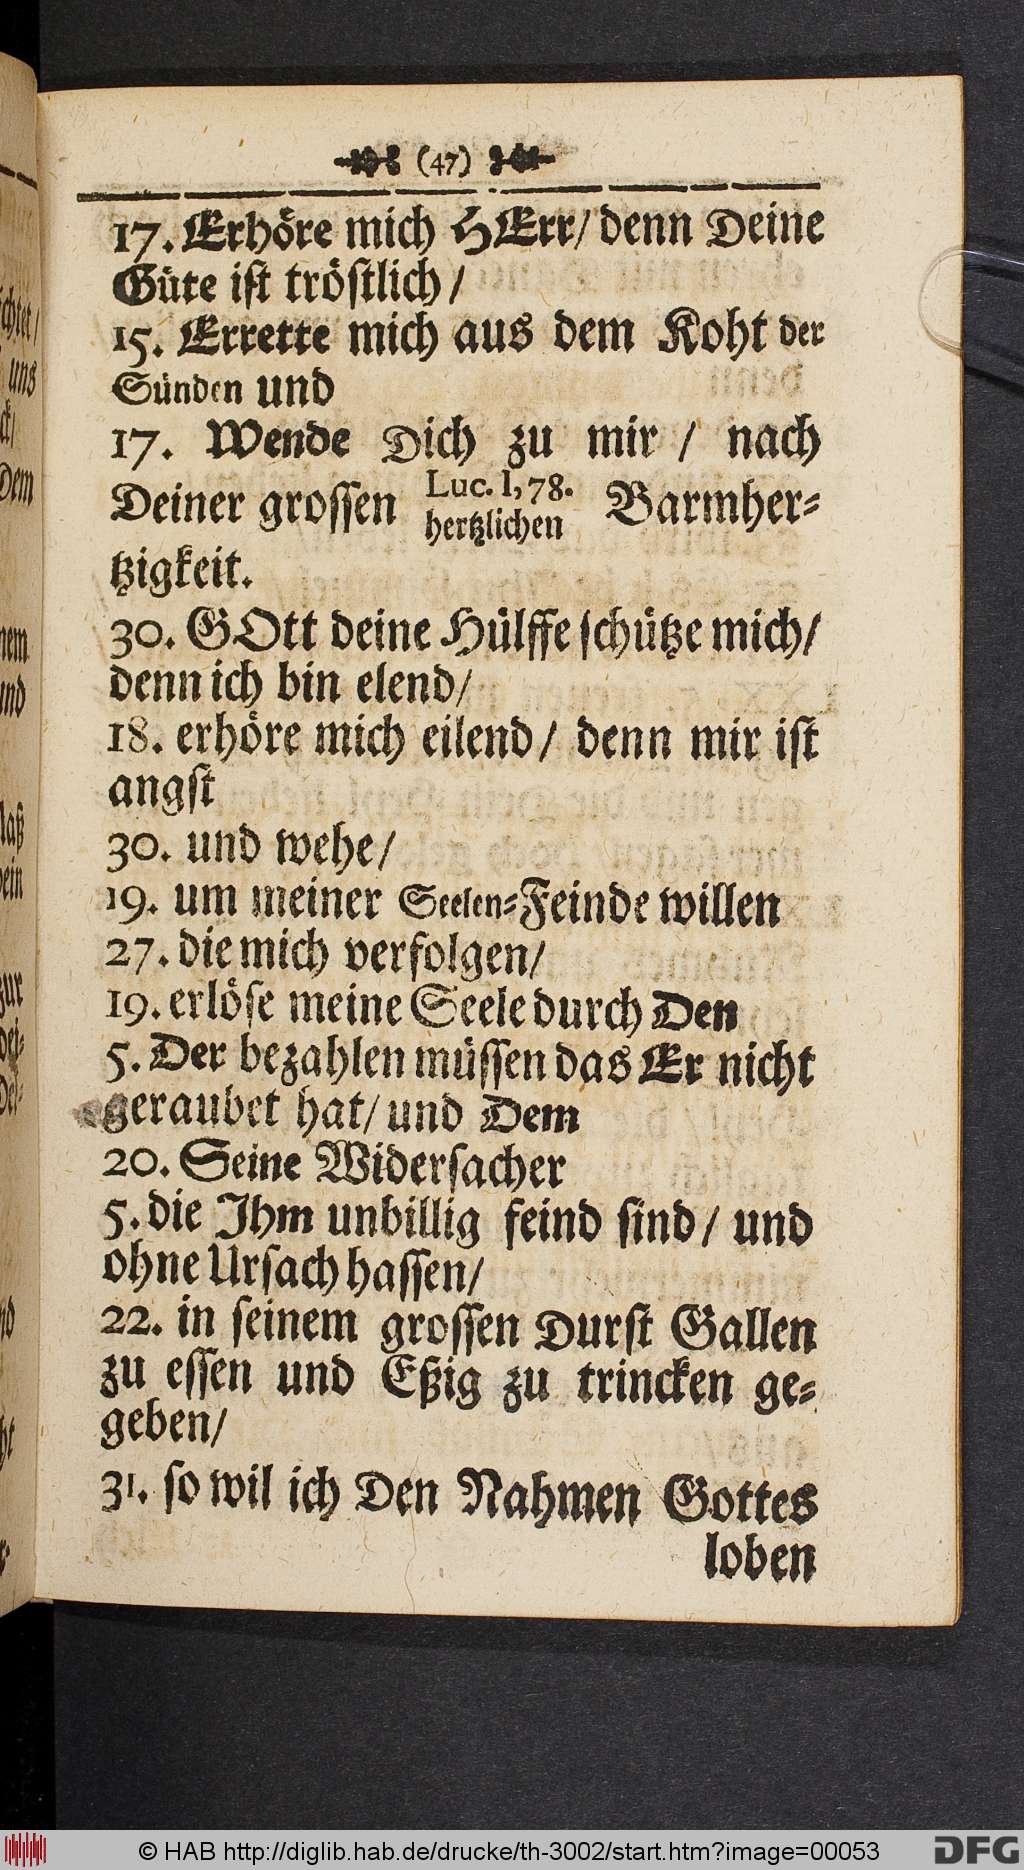 (47)
17. Erhöre mich HErr/ denn Deine
Güte ist tröstlich/
15. Errette mich aus dem Koht der
Sünden und
17. Wende Dich zu mir / nach
Deiner grossen Luc. I, 78. hertzlichen Barmher-
tzigkeit.
30. GOtt deine Hülffe schütze mich/
denn ich bin elend/
18. erhöre mich eilend/ denn mir ist
angst
30. und wehe/
19. um meiner Seelen-Feinde willen
27. die mich verfolgen/
19. erlöse meine Seele durch Den
5. Der bezahlen müssen das Er nicht
geraubet hat/ und Dem
20. Seine Widersacher
5. die Ihm unbillig feind sind/ und
ohne Ursach hassen/
22. in seinem grossen Durst Gallen
zu essen und Eßig zu trincken ge-
geben/
31. so wil ich Den Nahmen Gottes
loben
© HAB http://diglib.hab.de/drucke/th-3002/start.htm?image=00053
DFG